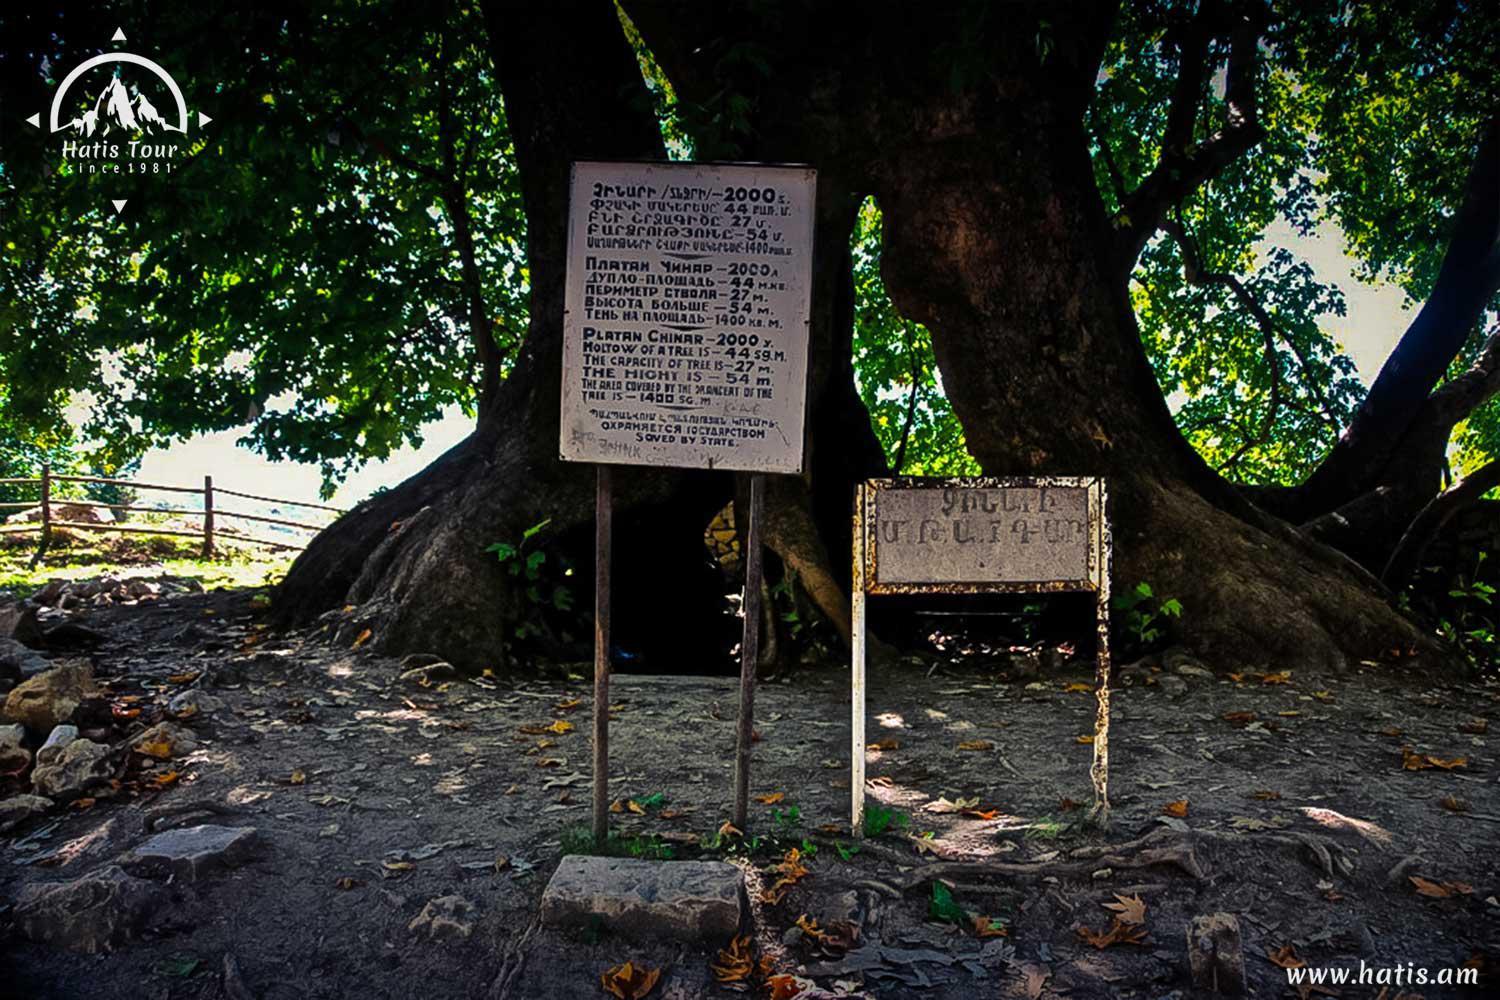 Hatis Tour
since 1981
ՉԻՆԱՐԻ /ՏՆՋՐԻ/ — 2000 Տ.
ՓՉԱԿԻ ՄԱԿԵՐԵՍԸ 44 ՔԱՌ. Մ.
ԲՆԻ ՇՐՋԱԳԻԾԸ 27 Մ.
ԲԱՐՁՐՈՒԹՅՈՒՆԸ — 54 Մ.
ՍԱՂԱՐԹՆԵՐԻ ՇՎԱՔԻ ՄԱԿԵՐԵՍԸ — 1400 ՔԱՌ. Մ.
ПЛАТАН ЧИНАР — 2000 Л
ДУПЛО-ПЛОЩАДЬ — 44 М.КВ.
ПЕРИМЕТР СТВОЛА — 27 М.
ВЫСОТА БОЛЬШЕ — 54 М.
ТЕНЬ НА ПЛОЩАДЬ — 1400 КВ. М.
PLATAN CHINAR — 2000 Y.
MOLTOW OF A TREE IS — 44 SG.M.
THE CAPACITY OF TREE IS — 27 M.
THE HIGHT IS — 54 m.
THE AREA COVERED BY THE BRANCERT OF THE
TREE IS — 1400 SG. M.
ՊԱՀՊԱՆՎՈՒՄ Է ՊԵՏՈՒԹՅԱՆ ԿՈՂՄԻՑ
ОХРАНЯЕТСЯ ГОСУДАРСТВОМ
SAVED BY STATE.
ՉԻՆԱՐԻ
www.hatis.am